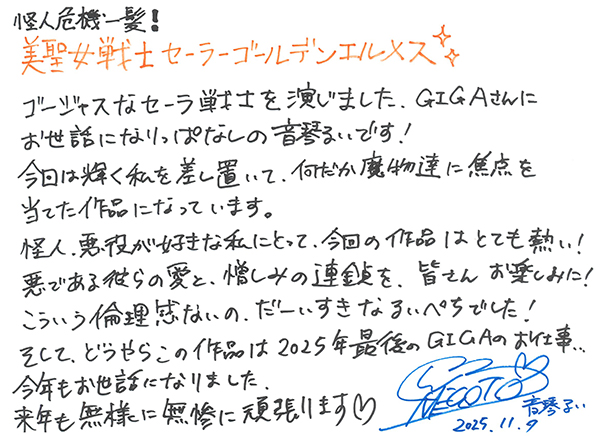 怪人危機一髪!
美聖女戦士セーラーゴールデンエルメス
ゴージャスなセーラ戦士を演じました、GIGAさんに
お世話になりっぱなしの音琴るいです!
今回は輝く私を差し置いて、何だか魔物達に焦点を
当てた作品になっています。
怪人、悪役が好きな私にとって、今回の作品はとても熱い!
悪である彼らの愛と、憎しみの連鎖を、皆さんお楽しみに!
こういう倫理感ないの、だーいすきなるいぺちでした!
そして、どうやらこの作品は2025年最後のGIGAのお仕事..
今年もお世話になりました、
来年も無様に無惨に頑張ります♡
NEGOTO
音琴るい
2025.11.9